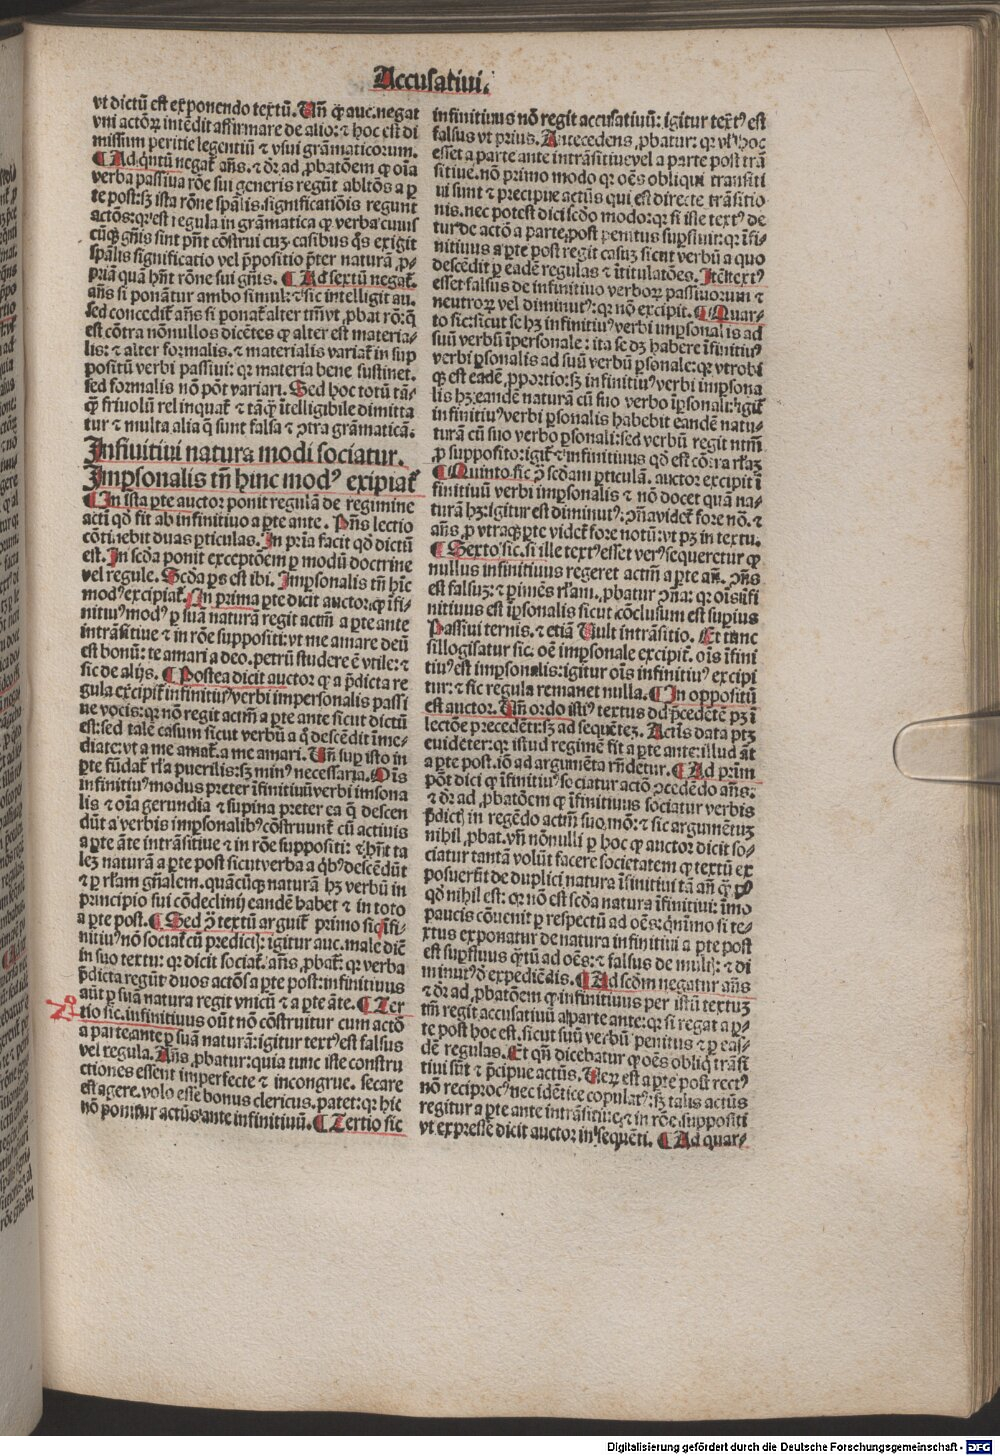 Accusatiui.
vt dictū est exponendo textū. Uñ ꝙ auc. negat
vni actōꝝ intēdit affirmare de alio: ⁊ hoc est di
missium peritie legentiū ⁊ vsui grāmaticorum.
¶ Ad q̈ntū negat̄ añs. ⁊ d̄r ad ꝓbatōem ꝙ oīa
verba passiua rōe sui generis regūt abltōs a ꝑ
te post: sꝫ ista rōne sp̄alis significatiōis regunt
actōs: qꝛ est regula in grāmatica ꝙ verba cuius
cūqꝫ gñis sint pñt cōstrui cuꝫ casibus q̄s exigit
sp̄alis significatio vel p̄positio p̄ter naturā ꝓ-
priā quā hñt rōne sui gñis. ¶ Ad sextū negat̄.
añs si ponātur ambo simul: ⁊ sic intelligit au.
sed concedit̄ añs si ponat̄ alter tm̄ vt ꝓbat rō: q̄
est cōtra nōnullos dicētes ꝙ alter est materia-
lis: ⁊ alter formalis. ⁊ materialis variat̄ in sup
positū verbi passiui: qꝛ materia bene sustinet.
sed formalis nō pōt variari. Sed hoc totū tā-
ꝙ̄ friuolū relinquat̄ ⁊ tāꝙ̄ ītelligibile dimitta
tur ⁊ multa alia q̄ sunt falsa ⁊ ꝯtra grāmaticā.
Infiuitiui natura modi sociatur.
Imꝑsonalis tñ hinc modꝰ exipiat̄
¶ In ista ꝑte auctor ponit regulā de regimine
acti qd̄ fit ab infinitiuo a ꝑte ante. Pñs lectio
cōtinebit duas ꝑticulas. In pria facit qd̄ dictū
est. In scd̄a ponit exceptōem ꝑ modū doctrine
vel regule. Scd̄a ꝑs est ibi. Imꝑsonalis tñ hīc
modꝰ excipiat̄. In prima ꝑte dicit auctor: ꝙ īfi-
nitiuꝰ modꝰ ꝑ suā naturā regit actm̄ a ꝑte ante
intrāsitiue ⁊ in rōe suppositi: vt me amare deū
est bonū: te amari a deo. petrū studere ē vtile: ⁊
sic de alijs. ¶ Postea dicit auctor ꝙ a p̄dicta re
gula excipit̄ infinitiuꝰ verbi impersonalis passi
ue vocis: qꝛ nō regit actm̄ a ꝑte ante sicut dictū
est: sed talē casum sicut verbū a q̄ descēdit īme-
diate: vt a me amat̄. a me amari. Uñ suꝑ isto in
ꝑte fūdat̄ rl̄a puerilis: sꝫ minꝰ necessaria. Oīs
infinitiuꝰ modus preter īfinitiuū verbi imꝑsona
lis ⁊ oīa gerundia ⁊ supina preter ea q̄ descen
dūt a verbis imꝑsonalibꝰ cōstruunt̄ cū actiuis
a ꝑte āte intrāsitiue ⁊ in rōe suppositi: ⁊ hñt ta
leꝫ naturā a ꝑte post sicut verba a q̄bꝰ descēdūt
⁊ ꝑ rl̄am gñalem. quācūqꝫ naturā hꝫ verbū in
principio sui cōdeclinij eandē habet ⁊ in toto
a ꝑte post. ¶ Sed ꝯ̄ textū arguit̄ primo sic. īfi-
nitiuꝰ nō sociat̄ cū predictis: igitur auc. male diē
in suo textu: qꝛ dicit sociat̄. añs ꝓbat̄: qꝛ verba
p̄dicta regūt duos actōs a ꝑte post: infinitiuus
aūt ꝑ suā natura regit vnicū ⁊ a ꝑte āte. ¶ Ter
tio sic. infinitiuus oūt nō cōstruitur cum actō
a parte ante ꝑ suā naturā: igitur textꝰ est falsus
vel regula. Añs ꝓbatur: quia tunc iste constru
ctiones essent imperfecte ⁊ incongrue. secare
est agere. volo esse bonus clericus. patet: qꝛ hic
nō ponitur actūs ante infinitiuū. ¶ Tertio sic
infinitiuus nō regit accusatiuū: igitur textꝰ est
falsus vt prius. Antecedens ꝓbatur: qꝛ vl̄ hoc
esset a parte ante intrāsitiue vel a parte post trā
sitiue. nō primo modo qꝛ oēs obliqui transiti
ui sunt ⁊ precipue actūs qui est directe trāsitio
nis. nec potest dici scd̄o modo: qꝛ si iste textꝰ de
tur de actō a parte post penitus suꝑfluit: qꝛ īfi-
nitiuus a ꝑte post regit casuꝫ sicut verbū a quo
descēdit ꝑ eadē regulas ⁊ ītitulatōes. Itē textꝰ
esset falsus de infinitiuo verboꝝ passiuorum ⁊
neutroꝝ vel diminutꝰ: qꝛ nō excipit. ¶ Quar-
to sic: sicut se hꝫ infinitiuꝰ verbi imꝑsonalis ad
suū verbū īpersonale: ita se dꝫ habere īfinitiuꝰ
verbi ꝑsonalis ad suū verbū ꝑsonale: qꝛ vtrobi
qꝫ est eadē ꝓportio: sꝫ infinitiuꝰ verbi imꝑsona
lis hꝫ eandē naturā cū suo verbo īꝑsonali: igit̄
infinitiuꝰ verbi ꝑsonalis habebit eandē natu-
turā cū suo verbo ꝑsonali: sed verbū regit ntm̄
ꝓ supposito: igit̄ ⁊ infinitiuus qd̄ est cōtra rl̄aꝫ
¶ Quinto sic ꝯ̄ scd̄am ꝑticulā. auctor excipit ī
finitiuū verbi imꝑsonalis ⁊ nō docet quā na-
turā hꝫ: igitur est diminutꝰ: ꝯña videt̄ fore nō. ⁊
añs ꝓ vtraqꝫ ꝑte videt̄ fore notū: vt pꝫ in textu.
¶ Sexto sic. si ille textꝰ esset verꝰ sequeretur ꝙ
nullus infinitiuus regeret actm̄ a ꝑte añ. ꝯñs
est falsuꝫ: ⁊ ꝑimēs rl̄am. ꝓbatur ꝯña: qꝛ oīs īfi
nitiuus est īꝑsonalis sicut cōclusum est suꝑius
Passiui ternis. ⁊ etiā Uult intrāsitio. Et tunc
sillogisatur sic. oē imꝑsonale excipit̄. oīs īfini
tiuꝰ est imꝑsonalis: igitur oīs infinitiuꝰ excipi
tur: ⁊ sic regula remanet nulla. ¶ In oppositū
est auctor. Uñ ordo istiꝰ textus ad p̄cedētē pꝫ ī
lectōe precedēti: sꝫ ad sequēteꝫ. Actūs data ptꝫ
euidēter: qꝛ istud regimē fit a ꝑte ante: illud aūt
a ꝑte post. iō ad argumēta rñdetur. ¶ Ad prīm
pōt dici ꝙ īfinitiuꝰ sociatur actō ꝯcedēdo añs:
⁊ d̄r ad ꝓbatōem ꝙ īfinitiuus sociatur verbis
p̄dictis in regēdo actm̄ suo mō: ⁊ sic argumētuꝫ
nihil ꝓbat. vñ nōnulli ꝑ hoc ꝙ auctor dicit so-
ciatur tantā volūt facere societatem ꝙ textū ex
posuerūt de duplici natura īfinitiui tā añ ꝙ̄ pꝰ
qd̄ nihil est: qꝛ nō est scd̄a natura īfinitiui: īmo
paucis cōuenit ꝑ respectū ad oēs: q̄nimo si te-
xtus exponatur de natura infinitiui a ꝑte post
est suꝑfluus q̄tū ad oēs: ⁊ falsus de multis: ⁊ di
minutꝰ ꝺ expediēdis. ¶ Ad scd̄m negatur añs
⁊ d̄r ad ꝓbatōem ꝙ infinitiuus per istū textuꝫ
tm̄ regit accusatiuū a parte ante: qꝛ si regat a ꝑ-
te post hoc est. sicut suū verbū penitus ⁊ ꝑ eas-
dē regulas. Et qñ dicebatur ꝙ oēs obliq̄ trāsi
tiui sūt ⁊ p̄cipue actūs. Ueꝝ est a ꝑte post rectꝰ
nō reciprocꝰ nec idētice copulatꝰ: sꝫ talis actūs
regitur a ꝑte ante intrāsitiue ⁊ in rōe suppositi
vt expresse dicit auctor in sequēti. ¶ Ad quar-
Digitalisierung gefördert durch die Deutsche Forschungsgemeinschaft - DFG